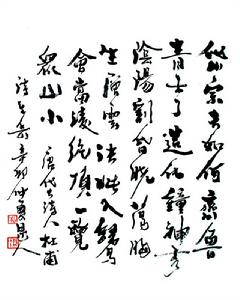 岱宗夫如何齊魯
青未了造化鐘神秀
陰陽割昏曉蕩胸
生層雲決眥入歸鳥
會當凌絕頂一覽
眾山小 唐代大詩人杜甫
詩望岳 辛卯仲夏